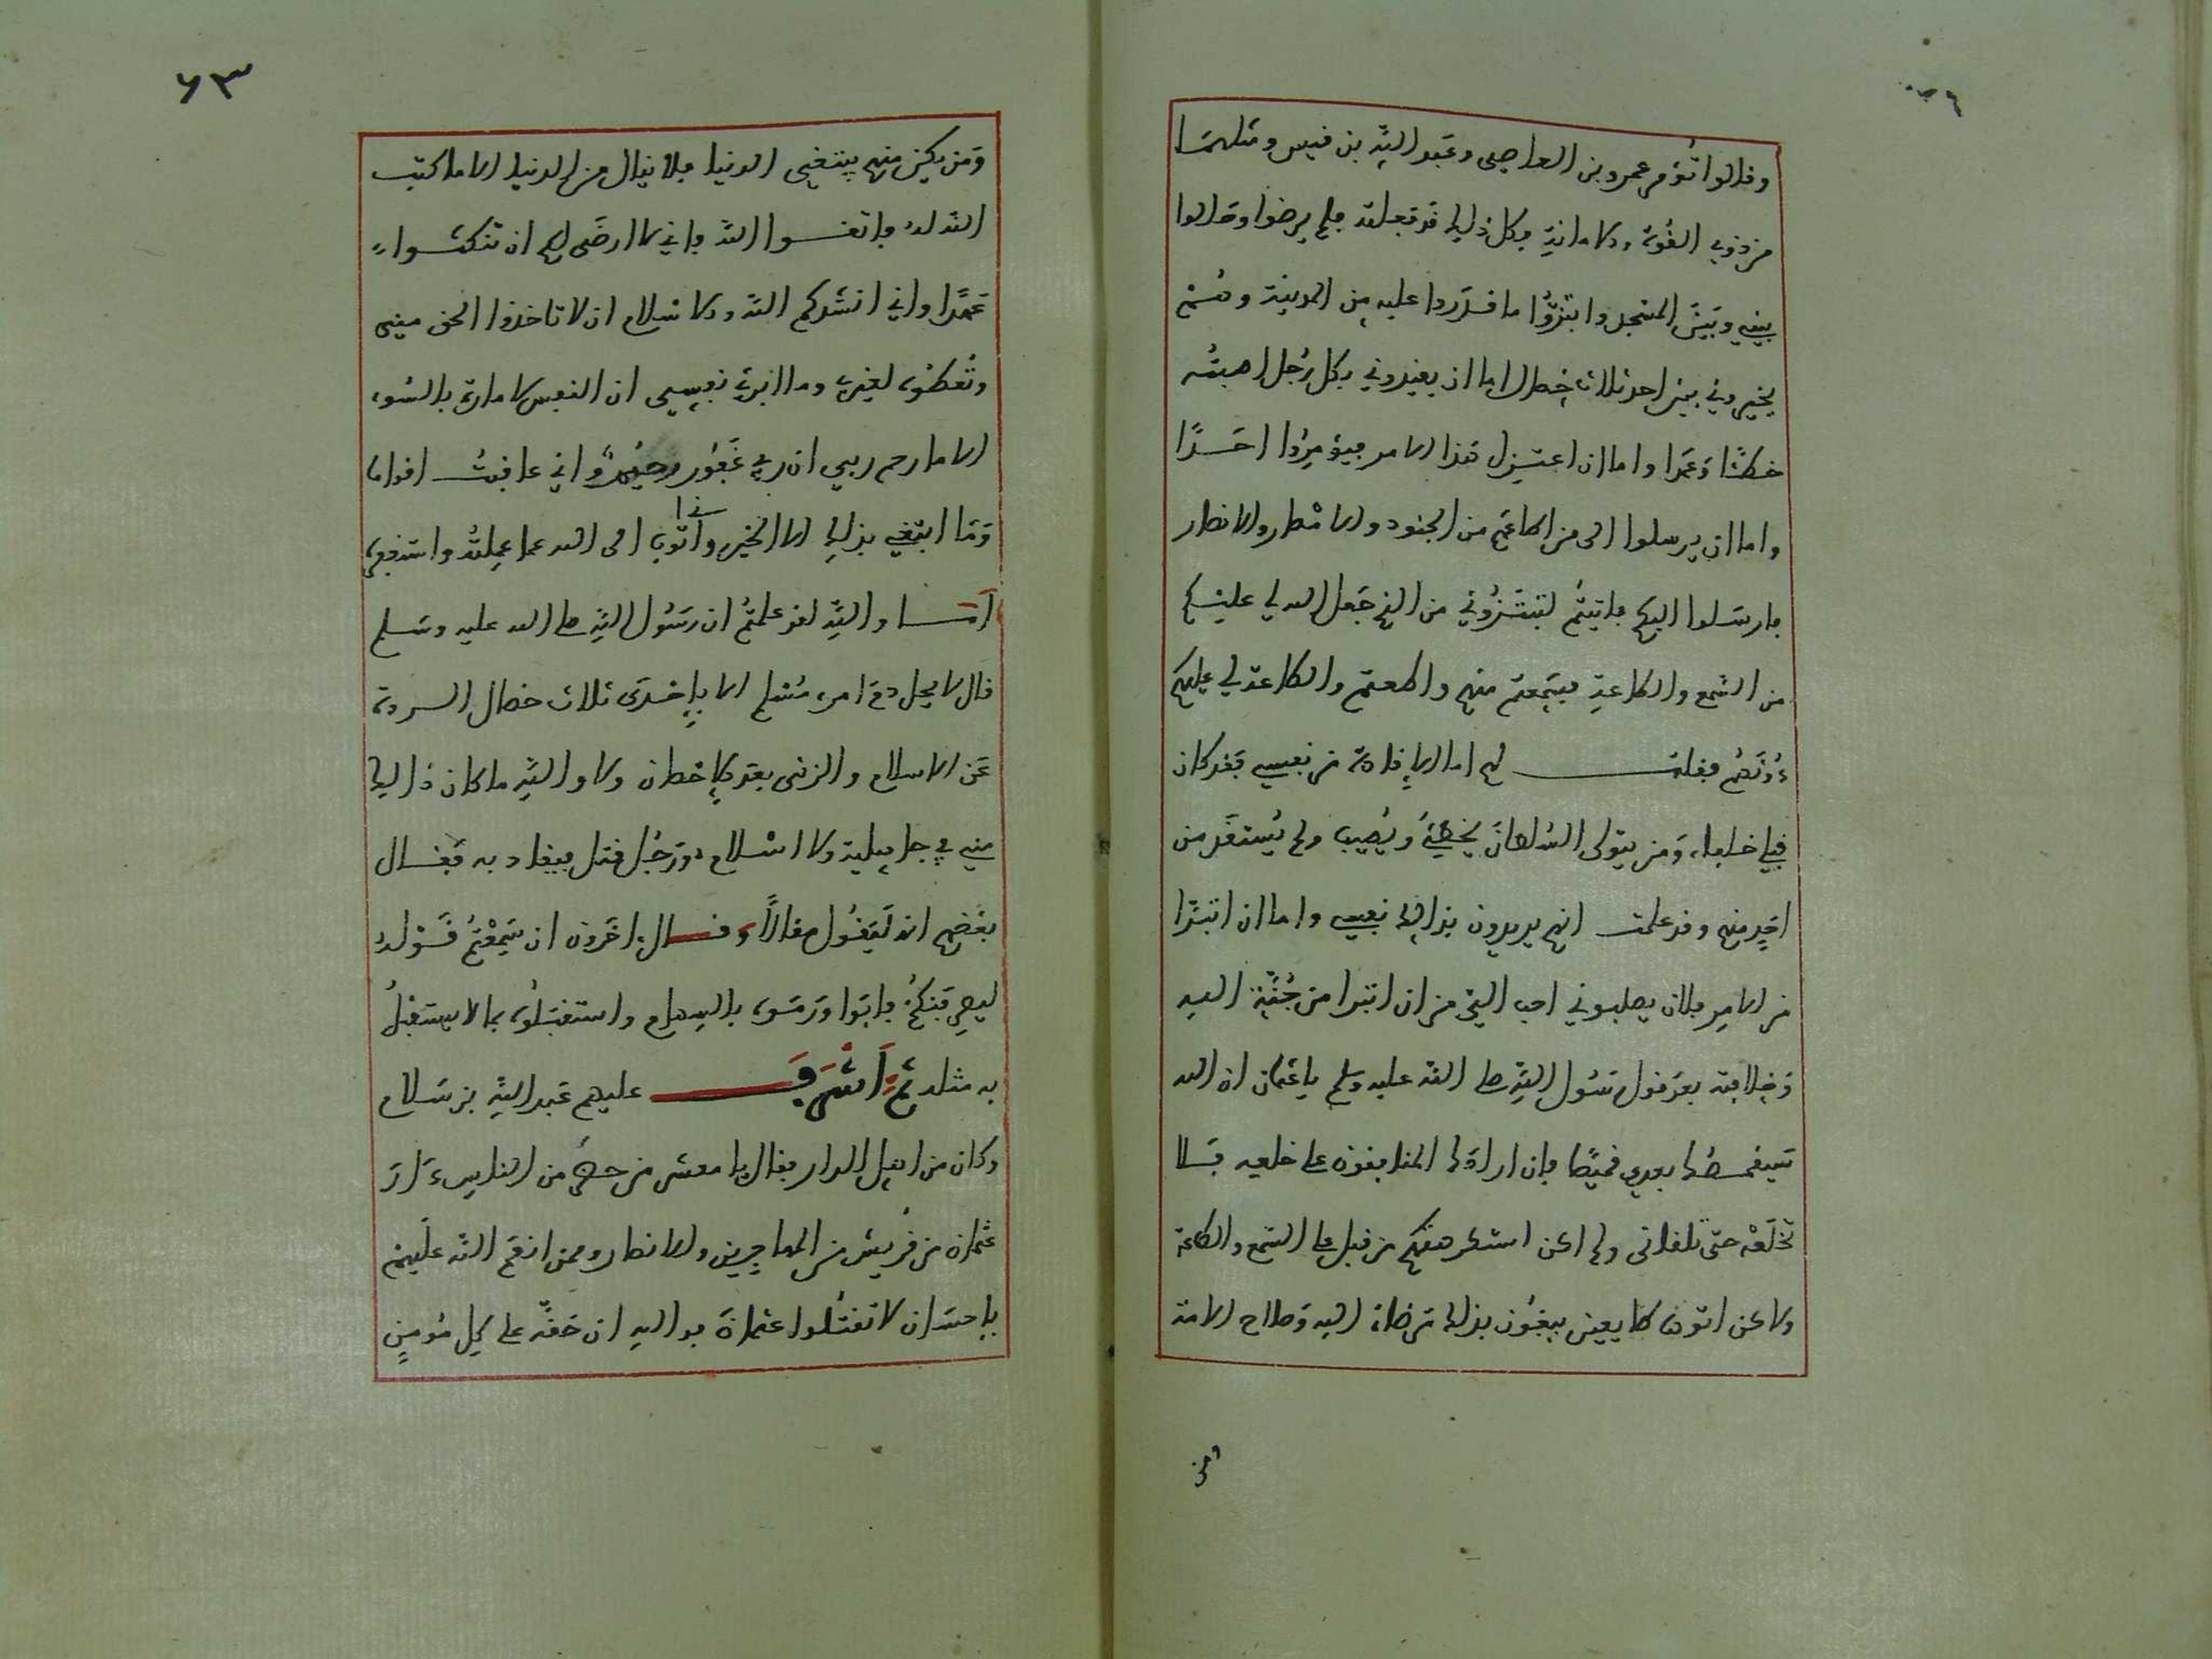 وقالوا تؤمر عمرو بن العاصي وعبد الله بن قيس ومثلهما
من ذوي القوة والامانة وكل ذلك قد فعلته فلم يرضوا وحالوا
بيني وبين المسجد وابتزوا ما قدروا عليه من المدينة وهم
يخيروني بين احد ثلاث خصال اما ان يقيدوني بكل رجل اصبته
خطأ وعمدا واما ان اعتزل هذا الامر فيؤمروا احدا
واما ان يرسلوا الى من اطاعهم من الجنود والامصار والانصار
فارسلوا اليكم فاتيتم لتبتزوني من الذي جعل الله لي عليكم
من السمع والطاعة فسمعتم منهم واطعتم والطاعة لي عليكم
دونهم فقلت لهم اما الاقادة من نفسي فقد كان
قبلي خلفاء ومن يتولى السلطان يخطئ ويصيب ولم يستقد من
احد منهم وقد علمت انهم يريدون بذلك نفسي واما ان اتبرا
من الامر فلان يصلبوني احب الي من ان اتبرا من جنة الله
وخلافته بعد قول رسول الله صلى الله عليه وسلم يا عثمان ان الله
سيقمصك بعدي قميصا فان ارادك المنافقون على خلعه فلا
تخلعه حتى تلقاني ولم اكن استكرهتكم من قبل على السمع والطاعة
ولاكن اتوها طايعين يبغون بذلك مرضاة الله وصلاح الامة
ومن
٦٣
ومن يكن منهم يبتغي الدنيا فلا ينال من الدنيا الا ما كتب
الله له فاتقوا الله فاني لا ارضى لكم ان تنكثوا
عهدا واني انشدكم الله والاسلام ان لا تاخذوا الحق مني
وتعطوه لغيري وما ابرئ نفسي ان النفس لامارة بالسوء
الا ما رحم ربي ان ربي غفور رحيم واني عاقبت اقواما
وما ابتغي بذلك الا الخير واتوب الى الله مما عملته واستغفره
اما والله لقد علمتم ان رسول الله صلى الله عليه وسلم
قال لا يحل دم امرء مسلم الا باحدى ثلاث خصال الردة
عن الاسلام والزنى بعد احصان ولا والله ما كان ذلك
مني في جاهلية ولا اسلام ورجل قتل فيقاد به فقال
بعضهم انه ليقول مقالا وقال اخرون ان سمعتم قوله
ليصرفنكم فابوا ورموه بالسهام واستقبلوه بما لا يستقبل
به مثله ثم اشرف عليهم عبد الله بن سلام
وكان من اهل الدار فقال يا معشر من حضر من الناس دار
عثمان من قريش من المهاجرين والانصار وممن انعم الله عليهم
باحسان لا تقتلوا عثمان فوالله ان حقه على كل مومن